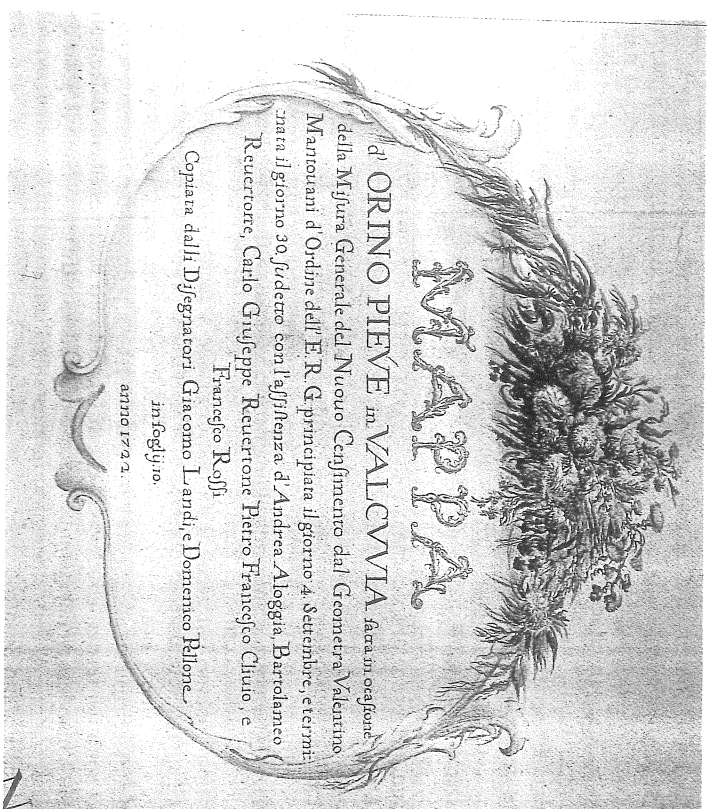 MAPPA
d' ORINO PIEVE in VALCVVIA fatta in ocaſione
della Miſura Generale del Nuouo Cenſimento dal Geometra Valentino
Mantouani d'Ordine dell' E.R.G. principiata il giorno 4. Settembre, e termi:
:nata il giorno 30. ſudetto con l'aſſiſtenza d'Andrea Aloggia, Bartolameo
Reuertorre, Carlo Giuſeppe Reuertone Pietro Franceſco Cliuio, e
Franceſco Roſſi
Copiata dalli Diſegnatori Giacomo Landi, e Domenico Pellone
in fogly. 10.
anno 1722.